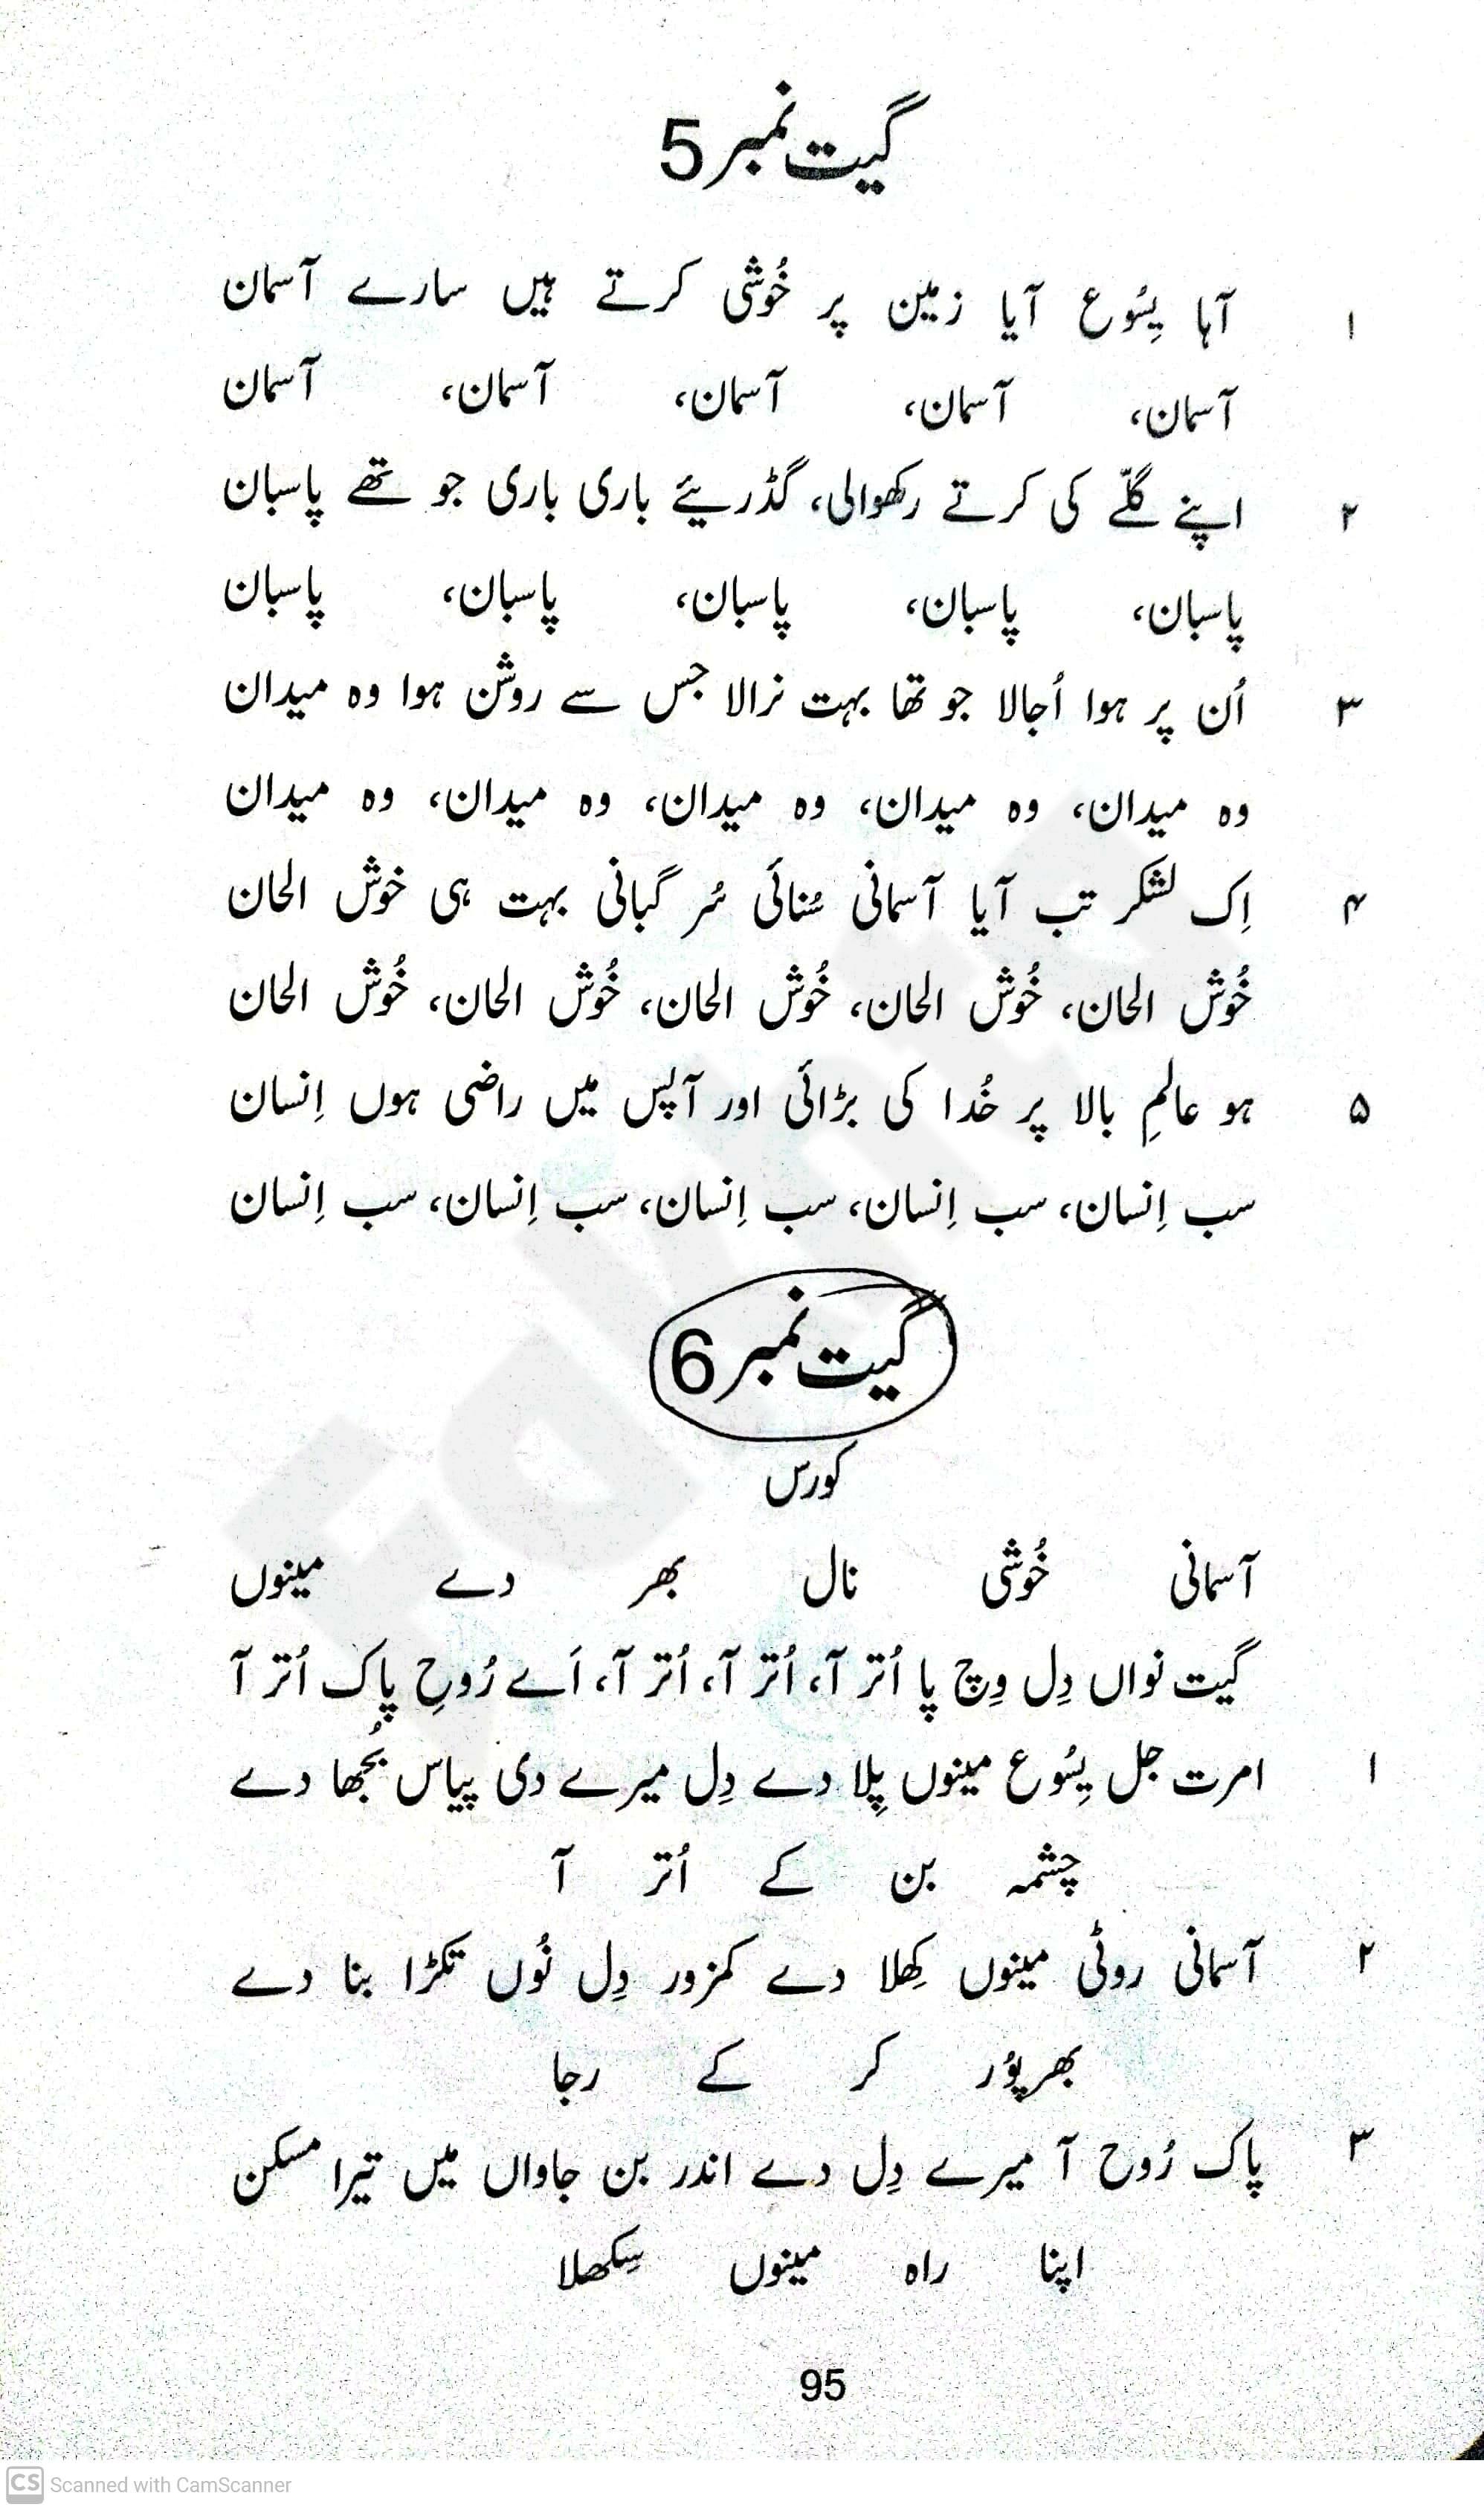 گیت نمبر 5
۱ آہا یِسُوع آیا زمین پر خُوشی کرتے ہیں سارے آسمان
آسمان، آسمان، آسمان، آسمان، آسمان
۲ اپنے گلّے کی کرتے رکھوالی، گڈریئے باری باری جو تھے پاسبان
پاسبان، پاسبان، پاسبان، پاسبان، پاسبان
۳ اُن پر ہوا اُجالا جو تھا بہت نرالا جس سے روشن ہوا وہ میدان
وہ میدان، وہ میدان، وہ میدان، وہ میدان، وہ میدان
۴ اِک لشکر تب آیا آسمانی سُنائی سُر گیانی بہت ہی خوش الحان
خُوش الحان، خُوش الحان، خُوش الحان، خُوش الحان، خُوش الحان
۵ ہو عالمِ بالا پر خُدا کی بڑائی اور آپس میں راضی ہوں اِنسان
سب اِنسان، سب اِنسان، سب اِنسان، سب اِنسان، سب اِنسان
گیت نمبر 6
کورس
آسمانی خُوشی نال بھر دے مینوں
گیت نواں دِل وِچ پا اُتر آ، اُتر آ، اُتر آ، اَے رُوحِ پاک اُتر آ
۱ امرت جل یِسُوع مینوں پِلا دے دِل میرے دی پیاس بُجھا دے
چشمہ بن کے اُتر آ
۲ آسمانی روٹی مینوں کِھلا دے کمزور دِل نُوں تکڑا بنا دے
بھرپُور کر کے رجا
۳ پاک رُوح آ میرے دِل دے اندر بن جاواں میں تیرا مسکن
اپنا راہ مینوں سِکھلا
95
CS Scanned with CamScanner